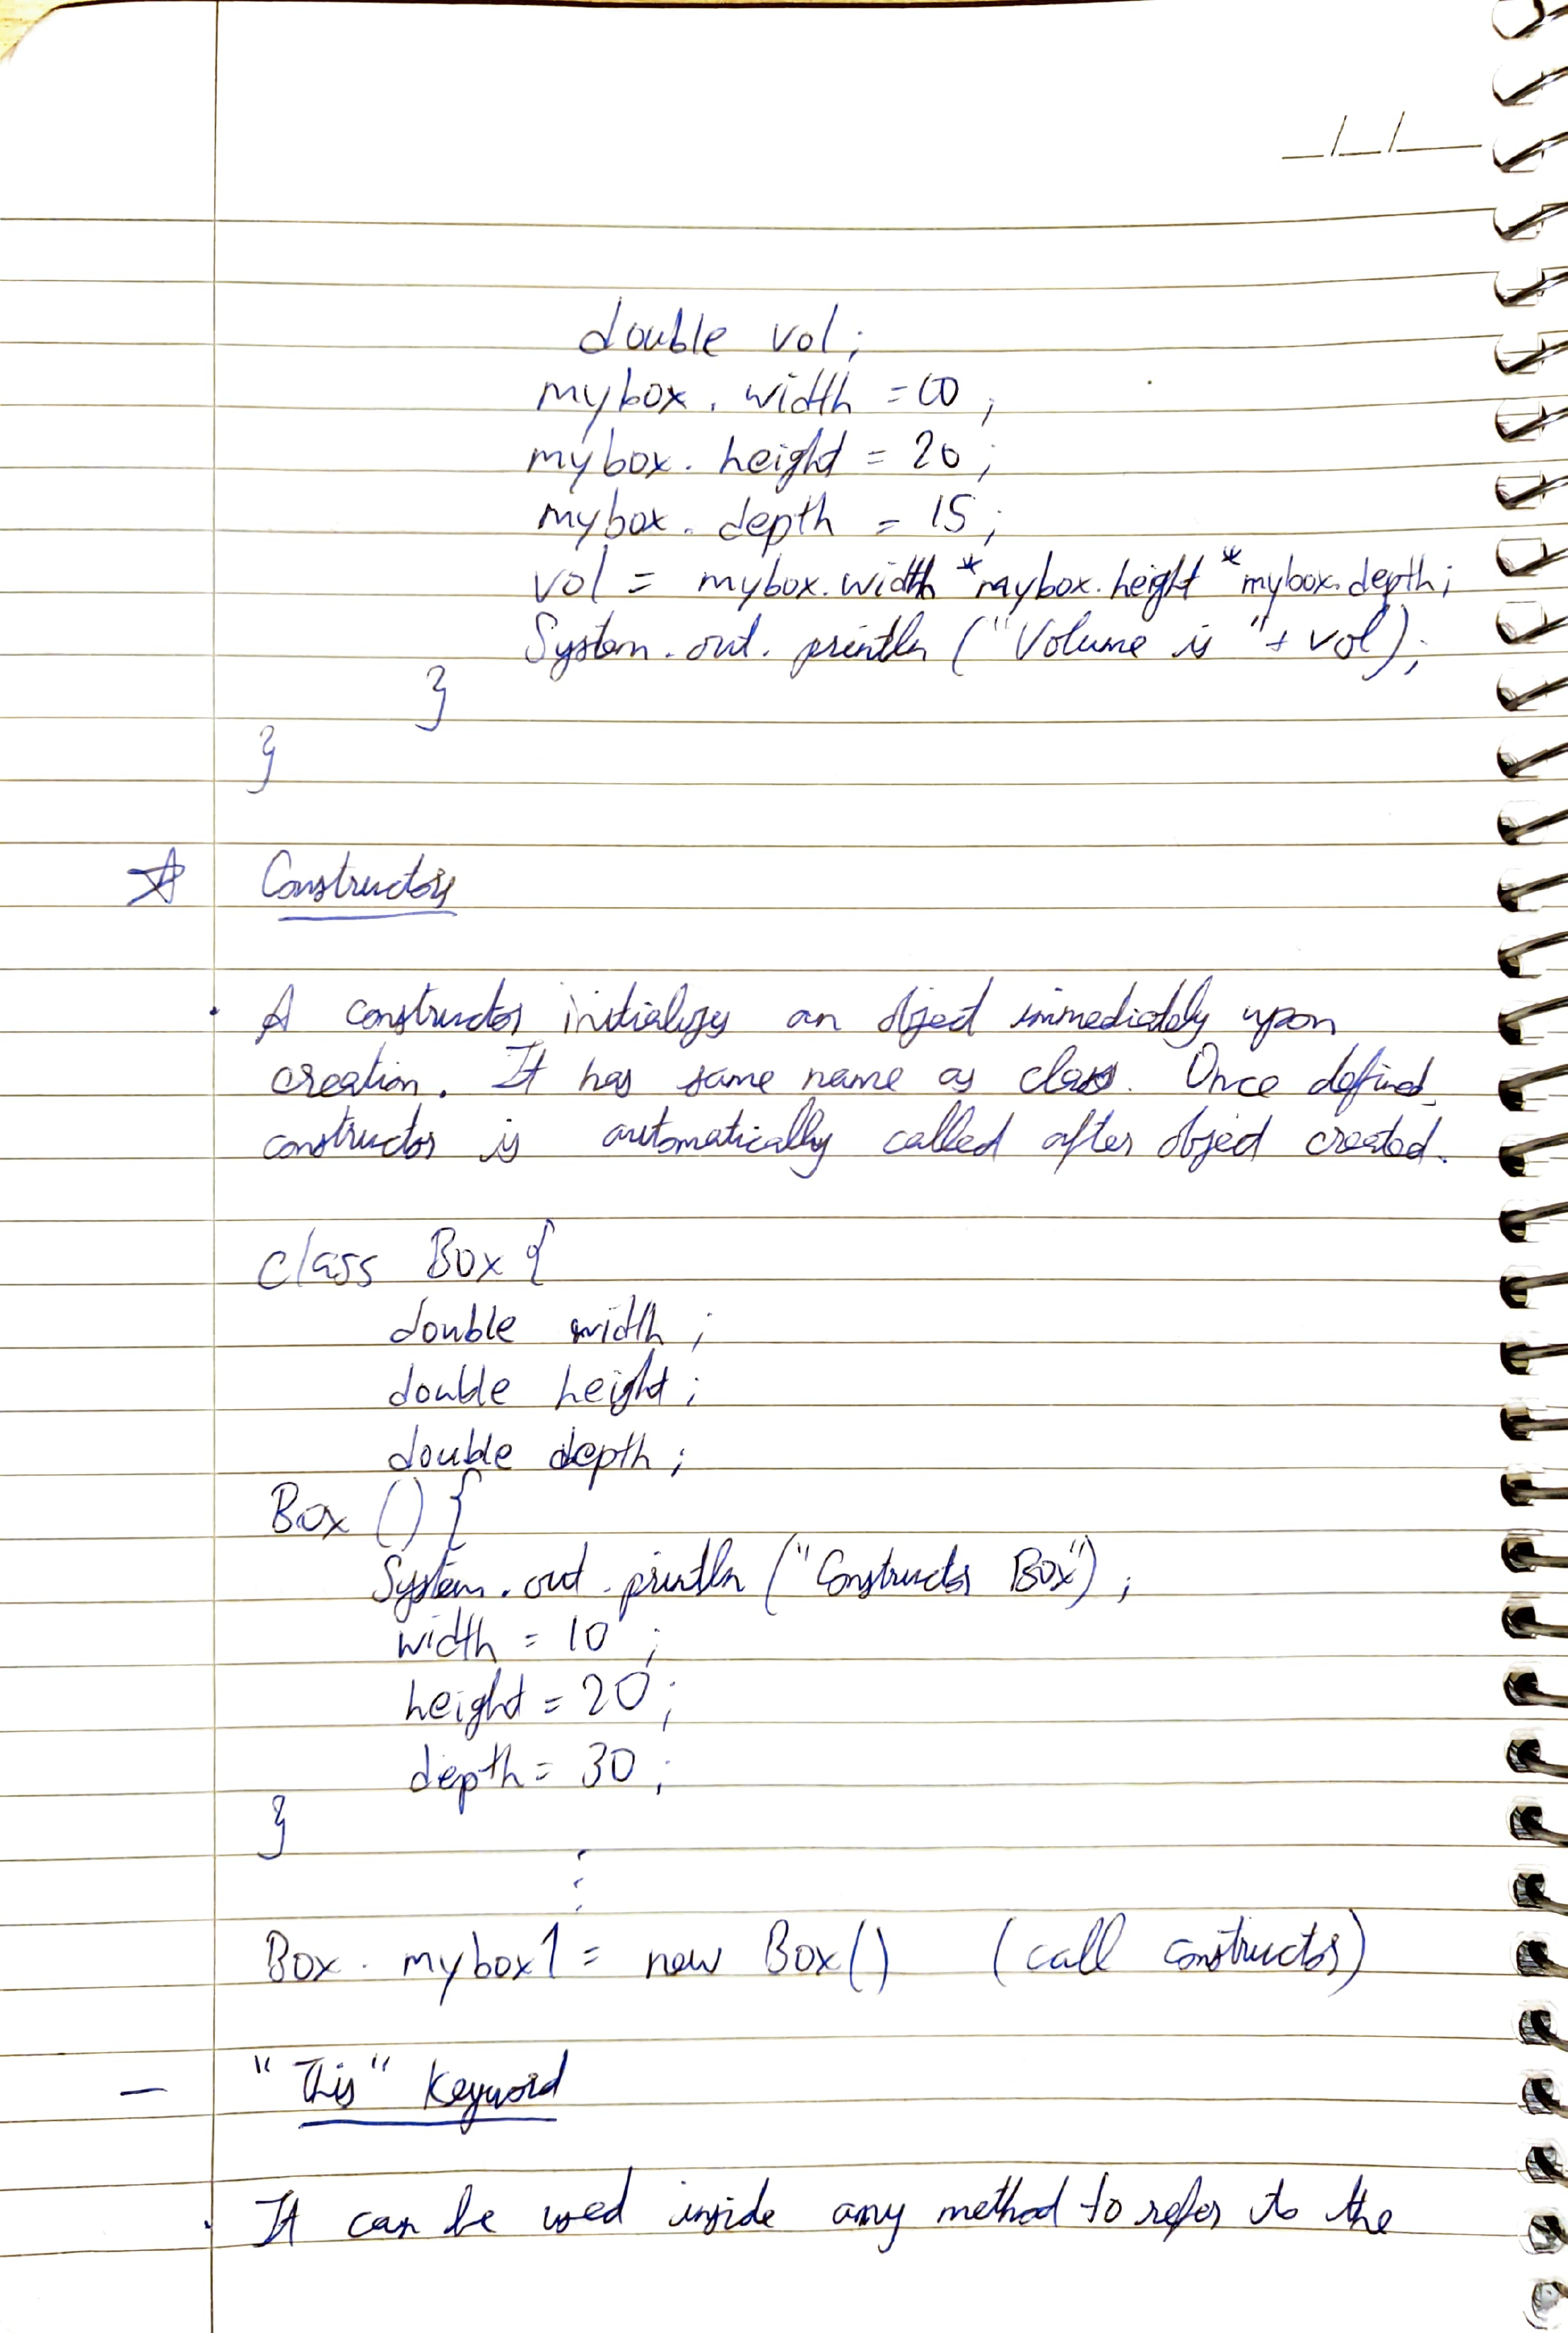 double vol;
mybox. width = 10;
mybox. height = 20;
mybox. depth = 15;
vol = mybox.width * mybox.height * mybox.depth;
System.out.println ("Volume is "+ vol);
}
}
Constructors
. A constructor initializes an object immediately upon
creation. It has same name as class. Once defined,
constructor is automatically called after object created.
class Box {
double width;
double height;
double depth;
Box () {
System.out.println ("Constructor Box");
width = 10;
height = 20;
depth = 30;
}
:
Box . mybox1 = new Box() (call constructor)
— "This" Keyword
. It can be used inside any method to refer to the